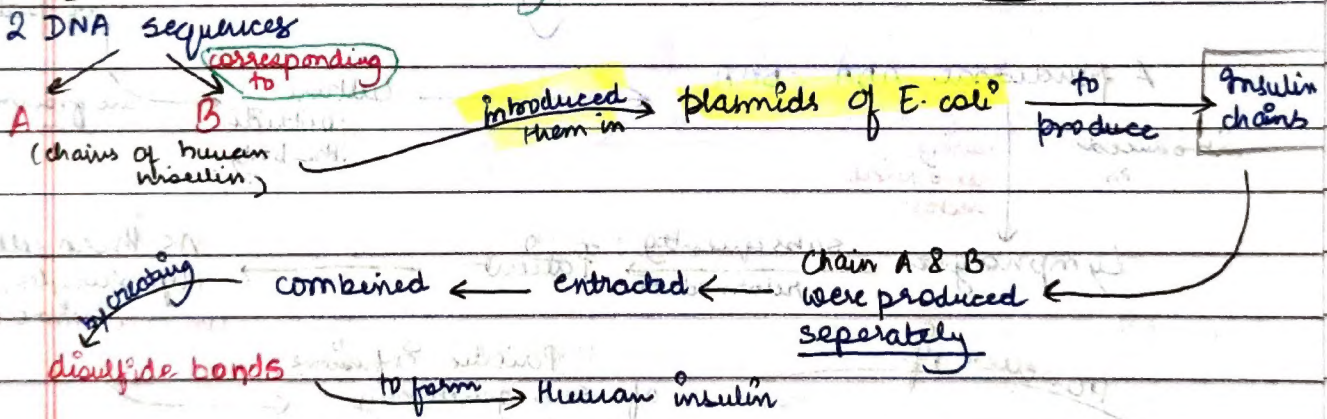 2 DNA sequences
corresponding
to
A B
(chains of human
insulin)
introduced
them in
plasmids of E. coli
to
produce
Insulin
chains
Chain A & B
were produced
seperately
extracted
combined
by creating
disulfide bonds
to form
Human insulin